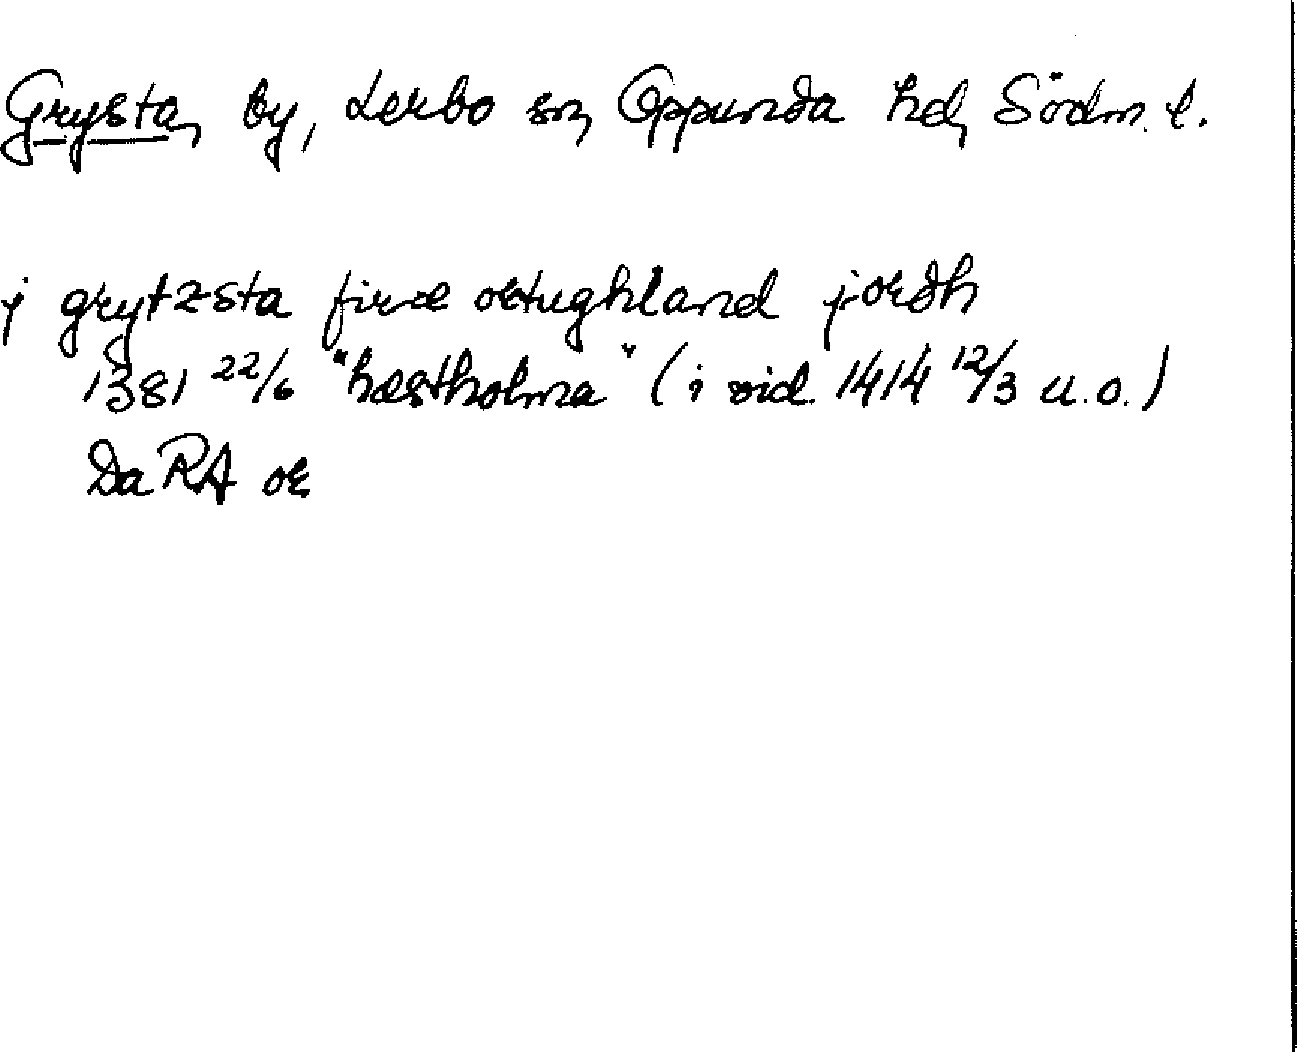 Grysta, by, Lerbo sn, Oppunda hd, Södm. l.
j grytzsta firæ ortughland jordh
1381 22/6 "hæstholma" (i vid. 1414 12/3 u.o.)
Da RA or